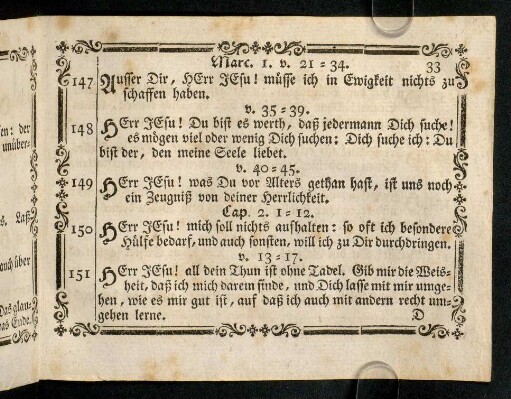 Marc. 1. v. 21 = 34. 33
147 Ausser Dir, HErr JEsu! müsse ich in Ewigkeit nichts zu
schaffen haben.
v. 35 = 39.
148 HErr JEsu! Du bist es werth, daß jedermann Dich suche!
es mögen viel oder wenig Dich suchen: Dich suche ich: Du
bist der, den meine Seele liebet.
v. 40 = 45.
149 HErr JEsu! was Du vor Alters gethan hast, ist uns noch
ein Zeugniß von deiner Herrlichkeit.
Cap. 2. 1 = 12.
150 HErr JEsu! mich soll nichts aufhalten: so oft ich besondere
Hülfe bedarf, und auch sonsten, will ich zu Dir durchdringen.
v. 13 = 17.
151 HErr JEsu! all dein Thun ist ohne Tadel. Gib mir die Weis=
heit, daß ich mich darein finde, und Dich lasse mit mir umge=
hen, wie es mir gut ist, auf daß ich auch mit andern recht um=
gehen lerne. D
der
unüber=
Laß
auch über
Das glau=
das Ende.